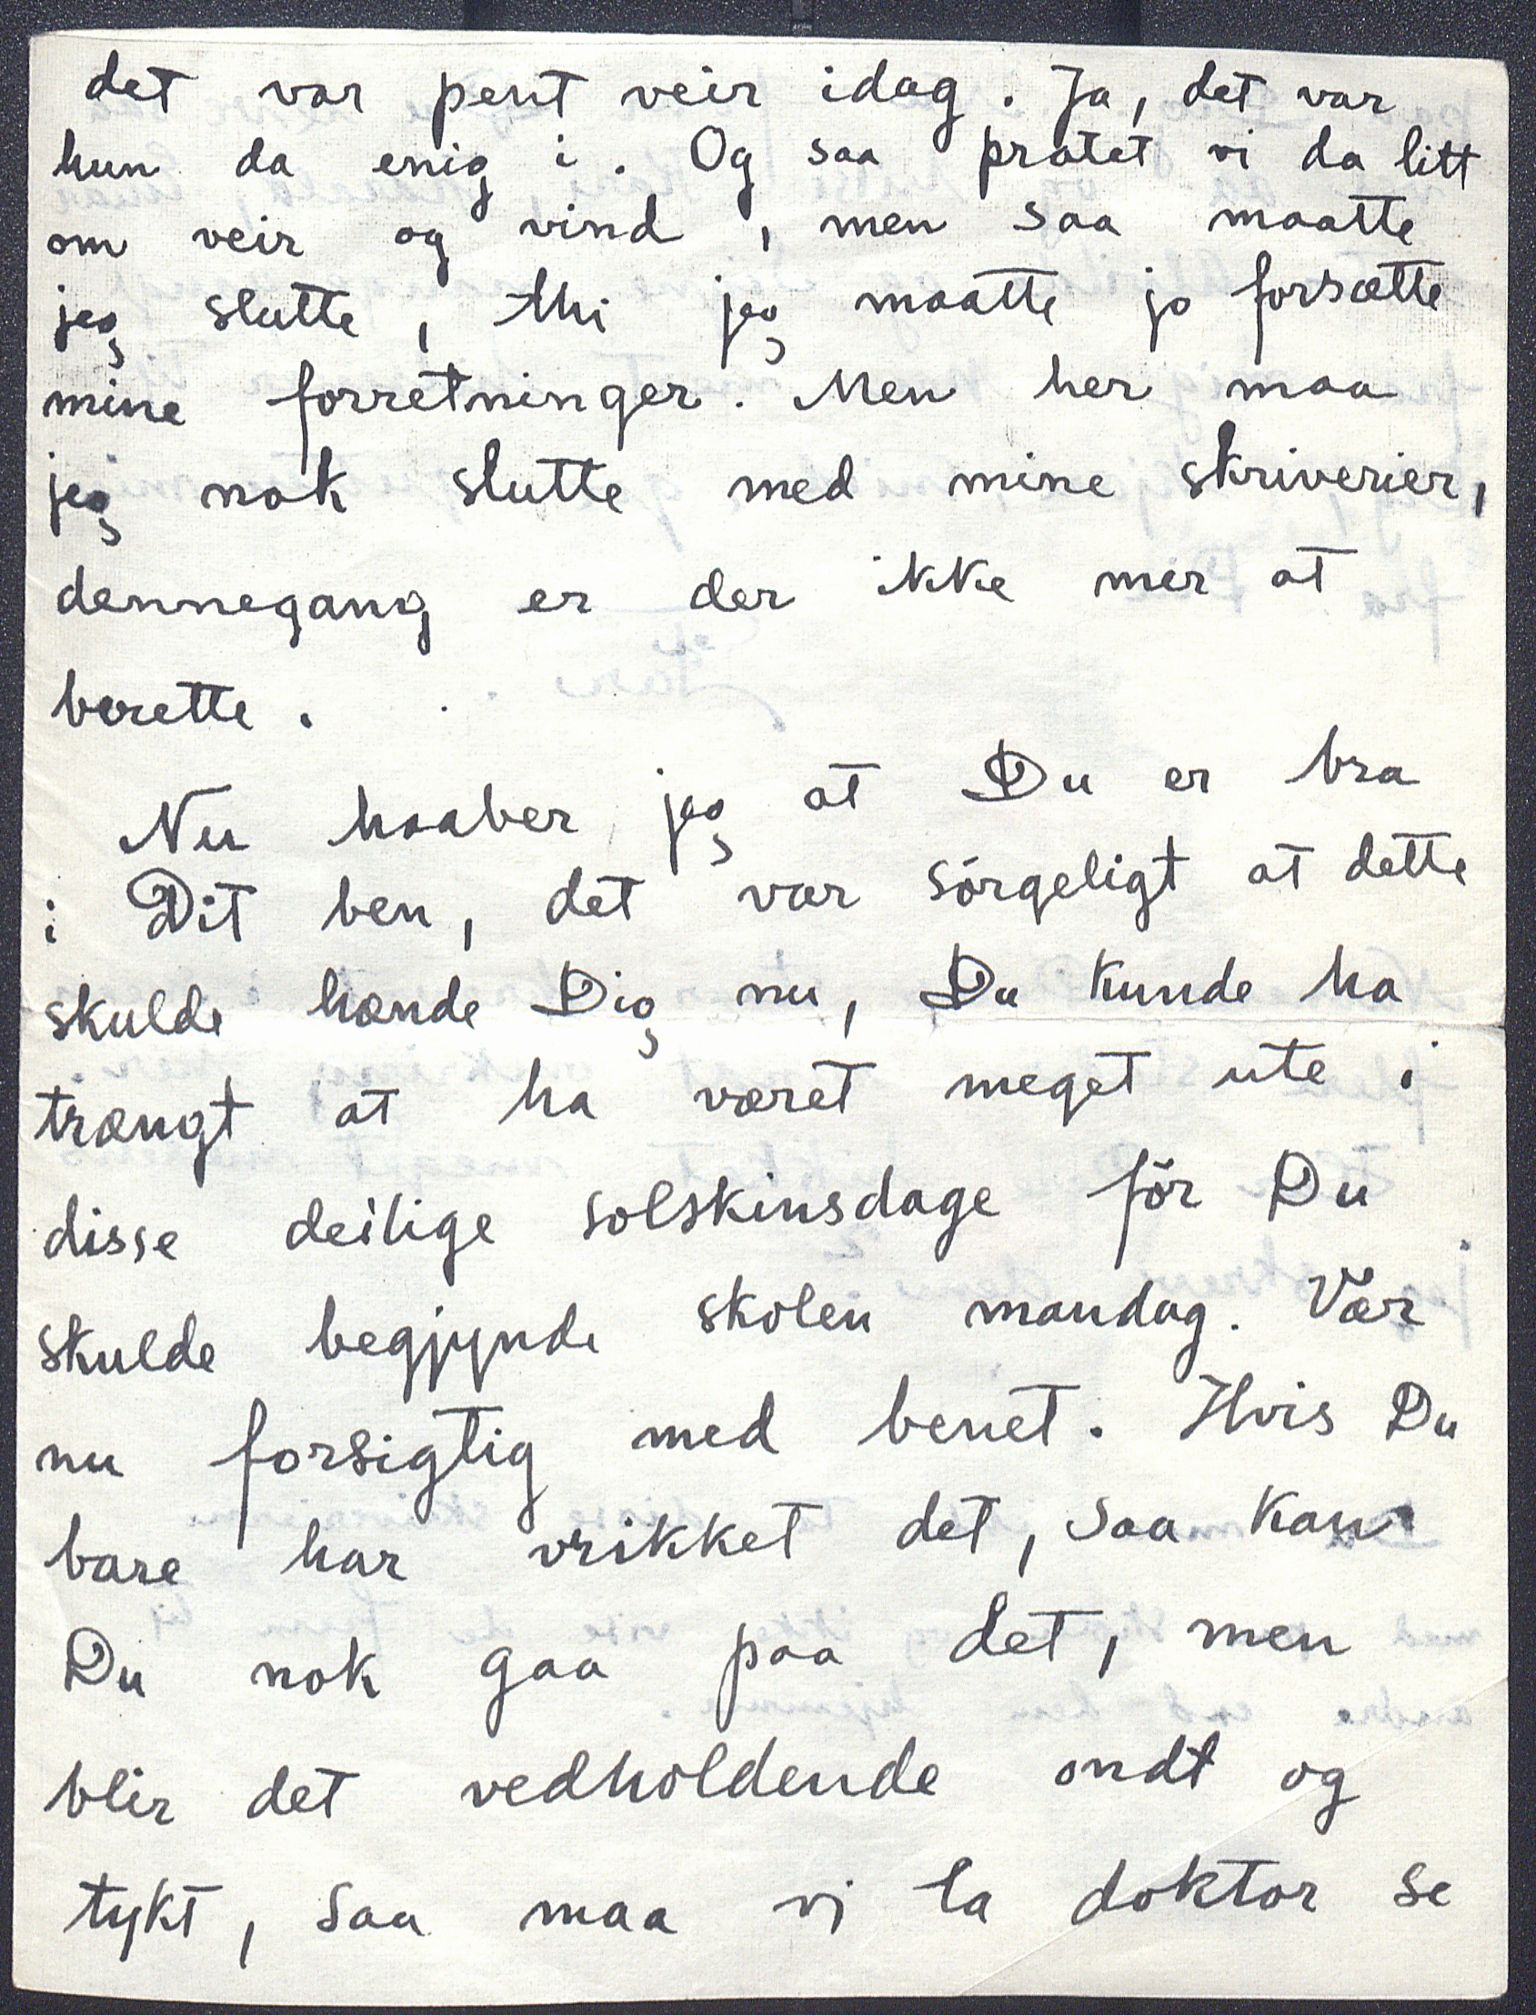 det var pent veir idag. Ja, det var
hun da enig i. Og saa pratet vi da litt
om veir og vind, men saa maatte
jeg slutte, thi jeg maatte jo forsætte
mine forretninger. Men her maa
jeg nok slutte med mine skriverier,
dennegang er der ikke mer at
berette.
Nu haaber jeg at Du er bra
i Dit ben, det var sórgeligt at dette
skulde hænde Dig nu, Du kunde ha
trængt at ha været meget ute i
disse deilige solskinsdage för Du
skulde begjynde skolen mandag. Vær
nu forsigtig med benet. Hvis Du
bare har vrikket det, saa kan
Du nok gaa paa det, men
blir det vedholdende ondt og
tykt, saa maa vi la doktor se